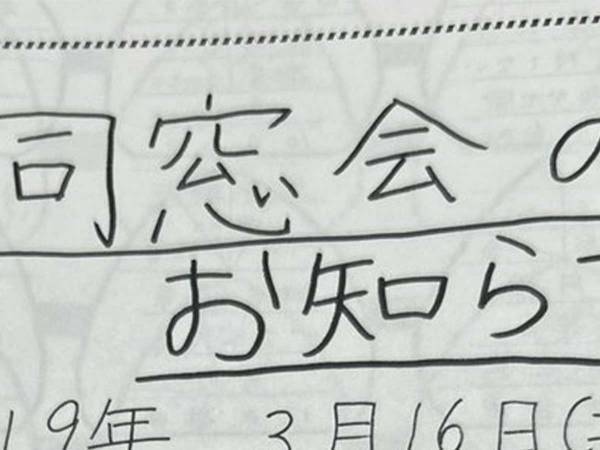 同窓会の
お知ら
19年 3月16日(